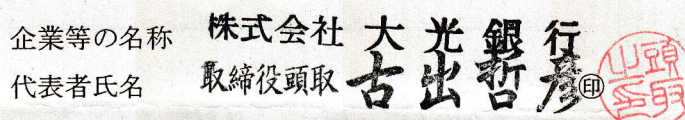 企業等の名称 株式会社 大光銀行
代表者氏名 取締役頭取 古出哲彦 ㊞